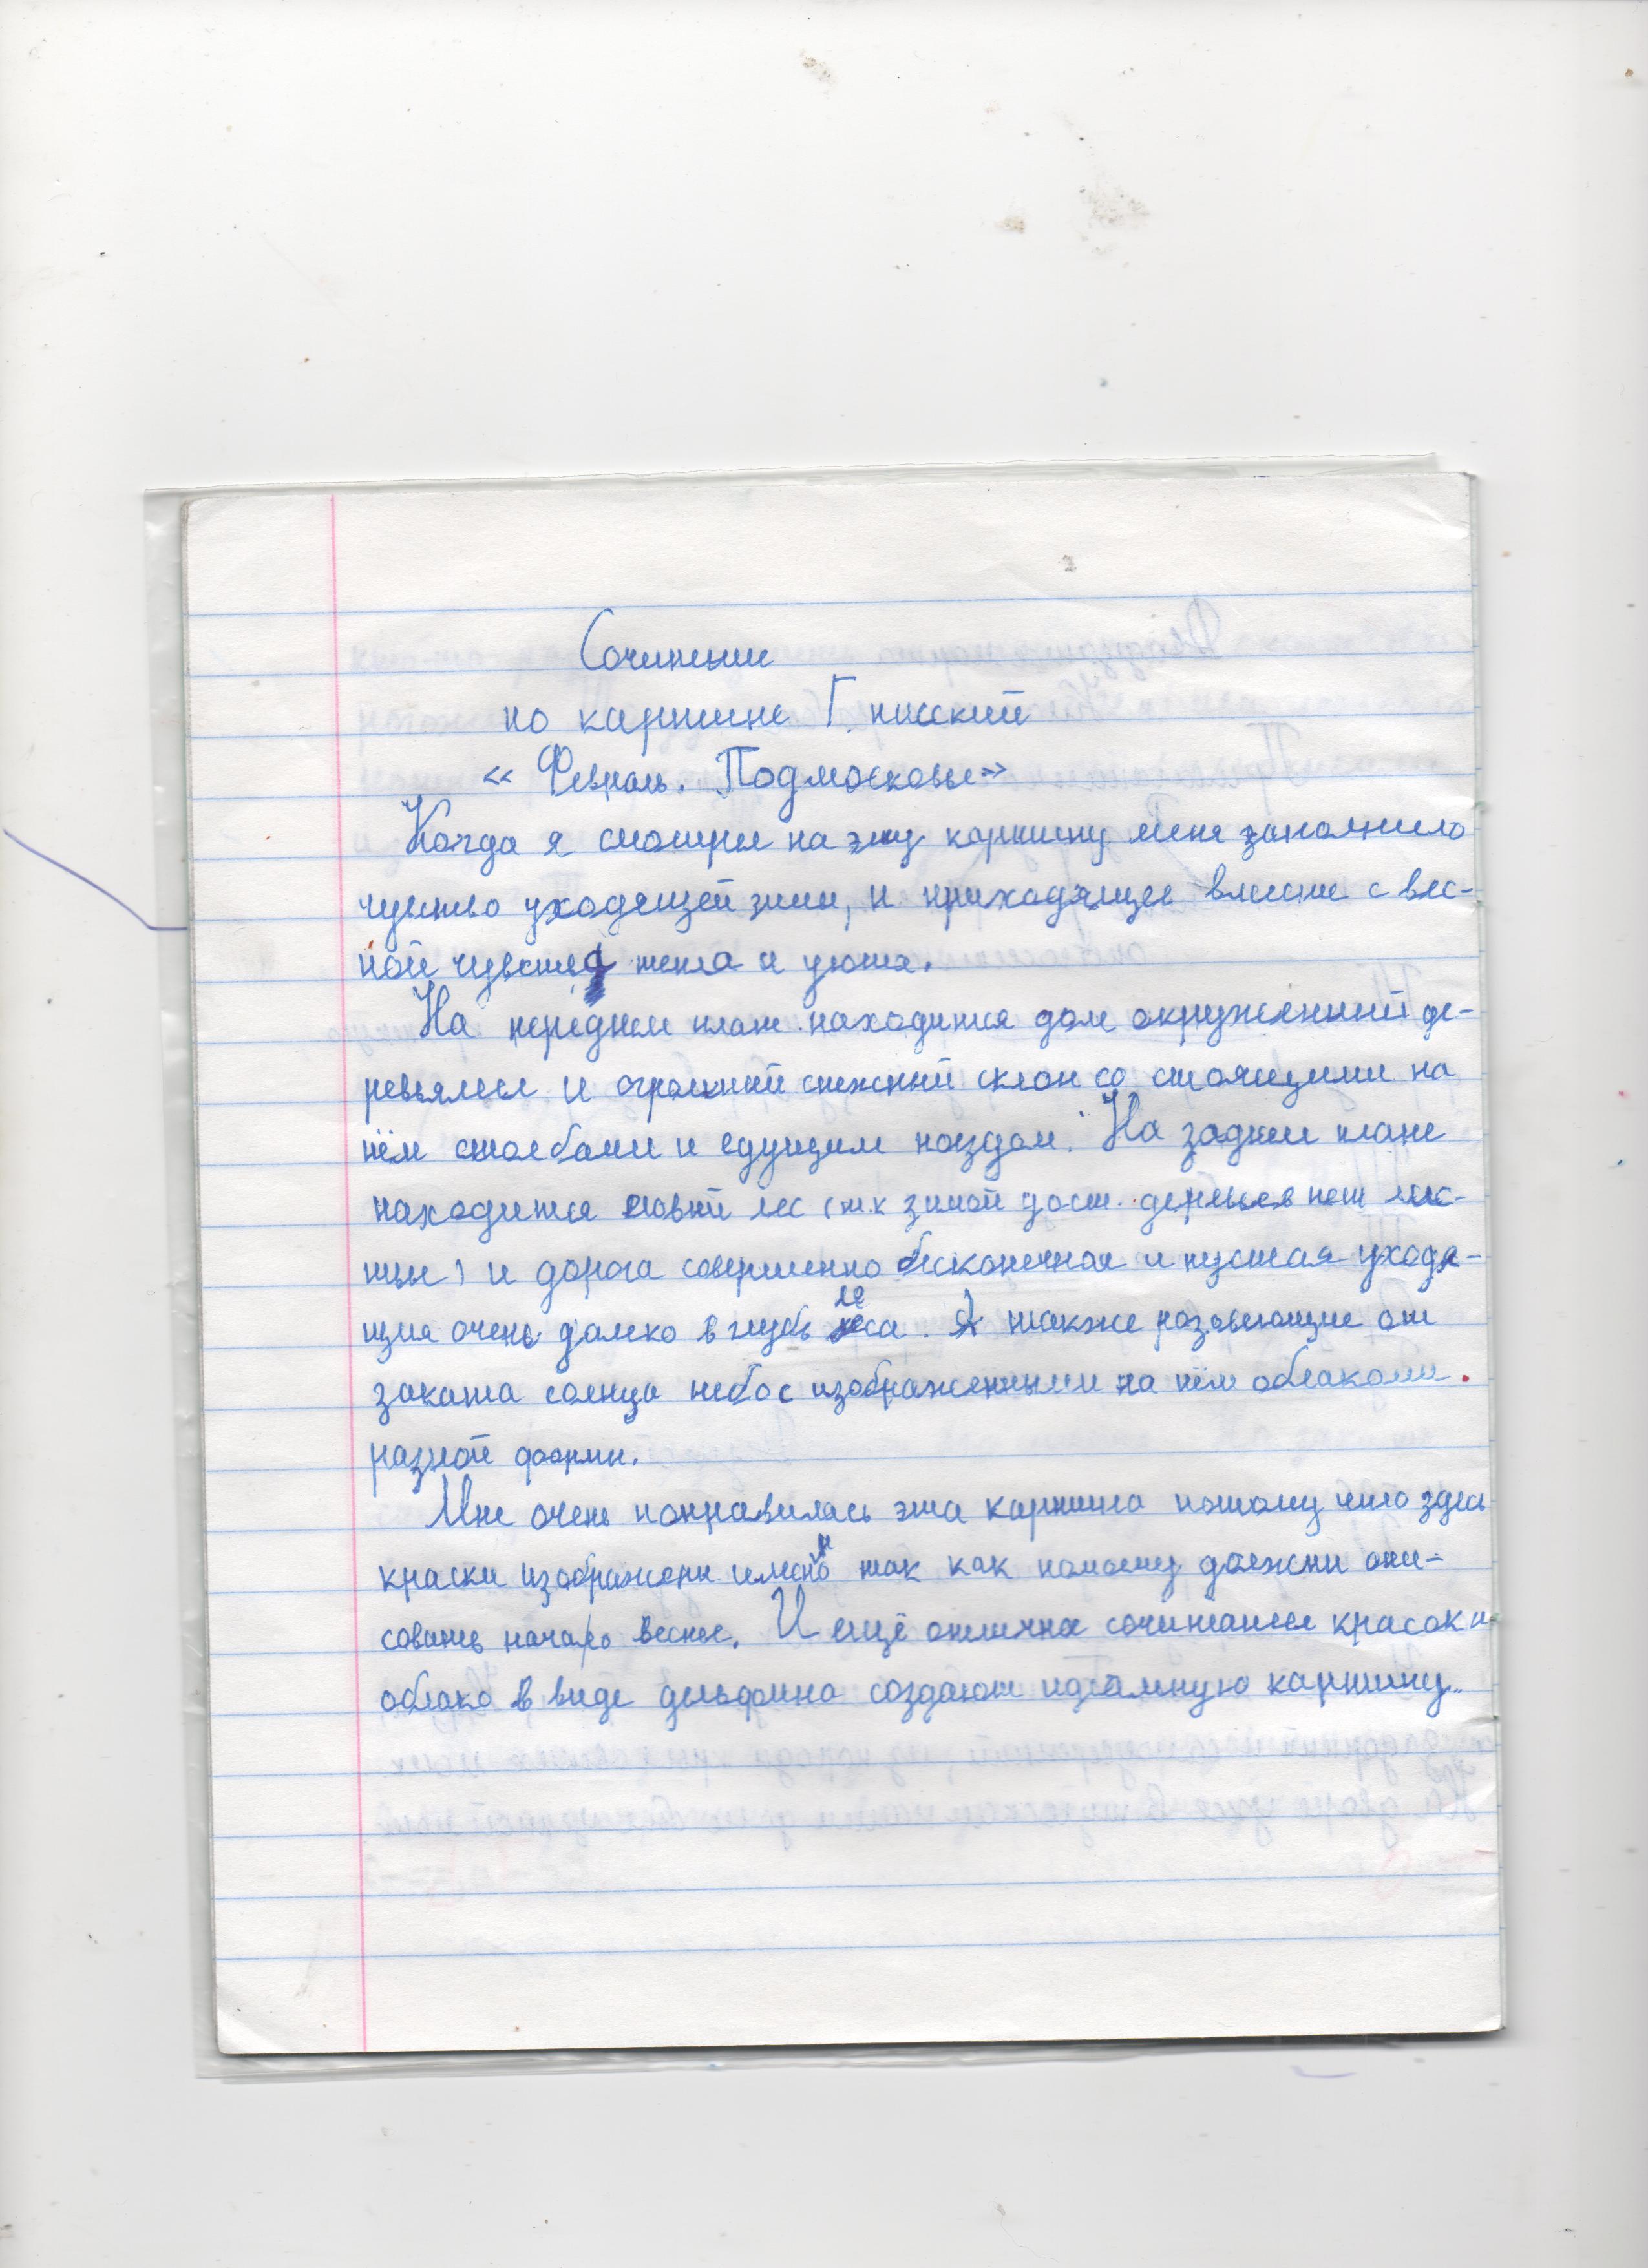 Сочинение
по картине Г. нисский
« Февраль. Подмосковье»
Когда я смотрел на эту картину меня заполнило
чувство уходящей зимы, и приходящее вместе с вес-
ной чувства тепла и уюта.
На переднем плане находится дом окруженный де-
ревьями и огромный снежный склон со стоящими на
нём столбами и едущим поездом. На заднем плане
находится еловый лес (т.к зимой у ост. деревьев нет лис-
твы) и дорога совершенно бесконечная и пустая уходя-
щая очень далеко в глубь леса. А также розовеющие от
заката солнца небо с изображенными на нём облаками
разной формы.
Мне очень понравилась эта картина потому что здесь
краски изображены именно так как помоему должны опи-
совать начало весны. И ещё отличное сочитание красок и
облако в виде дельфина создают идеальную картину.